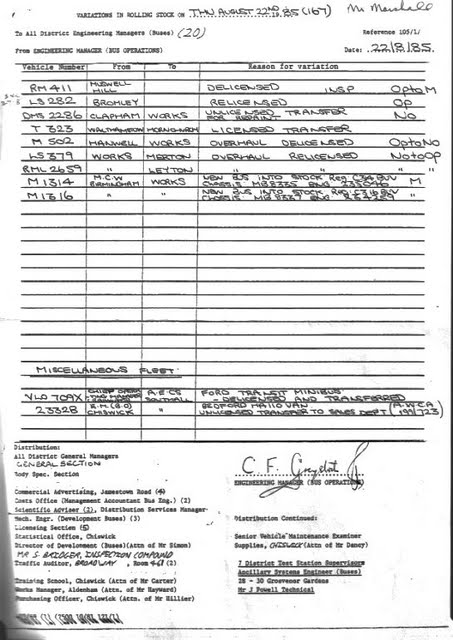 Mr Marshall
VARIATIONS IN ROLLING STOCK ON THU AUGUST 22ND 19 85 (167)
To All District Engineering Managers (Buses) (20)
Reference 105/1/
From ENGINEERING MANAGER (BUS OPERATIONS)
Date: 22/8/85.
Vehicle Number From To Reason for variation
RM 411 MUSWELL HILL DELICENSED INSP OPtoM
LS 282 BROMLEY RELICENSED Op
DMS 2286 CLAPHAM WORKS UNLICENSED TRANSFER FOR REPAINT No
T 323 WALTHAMSTOW HORNCHURCH LICENSED TRANSFER
M 502 HANWELL WORKS OVERHAUL DELICENSED OptoNo
LS 379 WORKS MERTON OVERHAUL RELICENSED NotoOp
RML 2659 " LEYTON " " "
M 1314 M.C.W BIRMINGHAM WORKS NEW BUS INTO STOCK Reg C314 BUV CHASSIS MB8335 ENG 235046 M
M 1316 " " NEW BUS INTO STOCK Reg C316 BUV CHASSIS MB8337 ENG "
MISCELLANEOUS FLEET
VLD 70AX A.E.C'S SOUTHALL FORD TRANSIT MINIBUS - DELICENSED AND TRANSFERRED
2332B CHISWICK " BEDFORD HA110 VAN UNLICENSED TRANSFER TO SALES DEPT (A.W.C.A. 199/723)
Distribution:
All District General Managers
GENERAL SECTION
Body Spec. Section
ENGINEERING MANAGER (BUS OPERATIONS)
Commercial Advertising, Jamestown Road (4)
Costs Office (Management Accountant Bus Eng.) (2)
Scientific Adviser (2), Distribution Services Manager
Mech. Engr. (Development Buses) (3)
Licensing Section (5)
Statistical Office, Chiswick
Director of Development (Buses)(Attn of Mr Simon)
MR S. BRIDGER, INSPECTION COMPOUND
Traffic Auditor, BROADWAY, Room 461 (2)
Training School, Chiswick (Attn of Mr Carter)
Works Manager, Aldenham (Attn of Mr Hayward)
Purchasing Officer, Chiswick (Attn of Mr Hillier)
Distribution Continued:
Senior Vehicle Maintenance Examiner
Supplies, CHISWICK (Attn of Mr Dancy)
7 District Test Station Supervisors
Ancillary Systems Engineer (Buses)
28 - 30 Grosvenor Gardens
Mr J Powell Technical